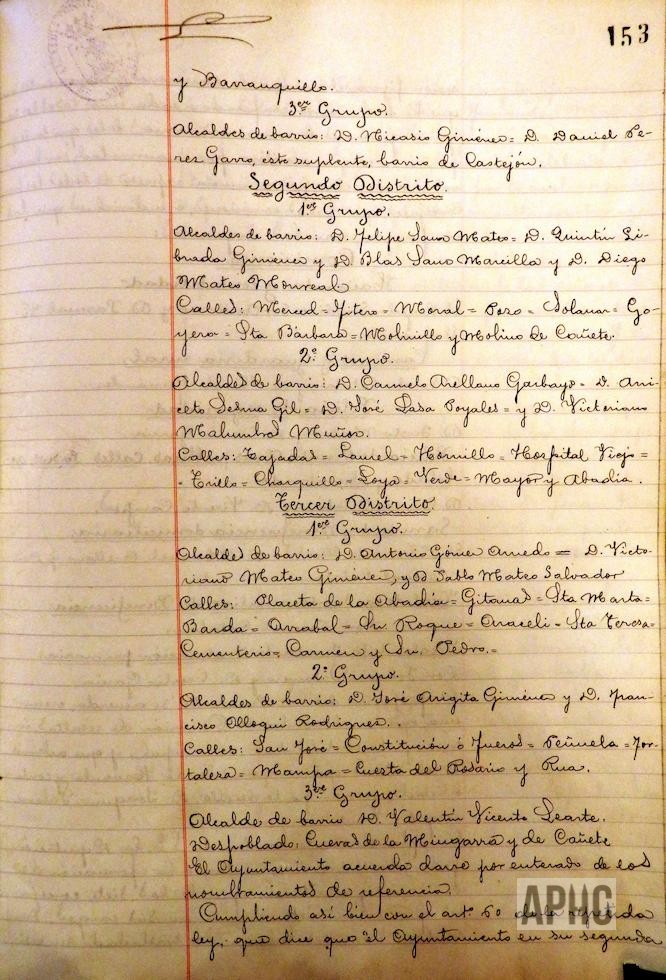 153
y Barranquillo.
3er Grupo.
Alcaldes de barrio: D. Nicasio Giménez = D. Daniel Pe-
rez Garro, éste suplente, barrio de Castejón.
Segundo Distrito.
1er Grupo.
Alcaldes de barrio: D. Felipe Sanz Mateo = D. Quintín Li-
brada Giménez y D. Blas Sanz Marcilla y D. Diego
Mateo Monreal
Calles: Merced = Fitero = Moral = Pozo = Solana = Go-
yero = Sta Bárbara = Molinillo y Molino de Cañete.
2º Grupo.
Alcaldes de barrio: D. Carmelo Arellano Garbayo = D. Ani-
ceto Sesma Gil = D. José Lasa Poyales = y D. Victoriano
Malumbres Muñoz.
Calles: Tajadas = Laurel = Hornillo = Hospital Viejo =
= Trillo = Charquillo = Loya = Verde = Mayor y Abadia.
Tercer Distrito.
1er Grupo.
Alcaldes de barrio: D. Antonio Gómez Arnedo = D. Victo-
riano Mateo Giménez, y D. Pablo Mateo Salvador
Calles: Placeta de la Abadia = Gitanas = Sta Marta =
Barda = Arrabal = Sn. Roque = Araceli = Sta Teresa =
Cementerio = Carmen y Sn. Pedro. =
2º Grupo.
Alcaldes de barrio: D. José Arigita Giménez y D. Fran-
cisco Olloqui Rodriguez.
Calles: San José = Constitución ó Fueros = Peñuela = For-
taleza = Mampa = Cuesta del Rosario y Rua.
3er Grupo.
Alcalde de barrio D. Valentín Vicente Learte.
Despoblado: Cuevas de la Mingarra y de Cañete
El Ayuntamiento acuerda darse por enterado de los
nombramientos de referencia.
Cumpliendo así bien con el artº 60 de la repetida
ley, que dice que "el Ayuntamiento en su segunda
APHC